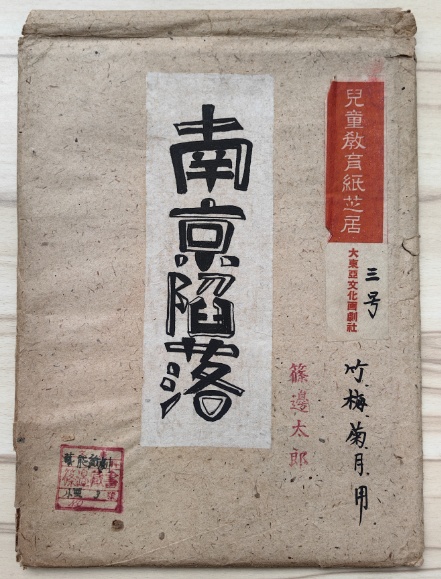 兒童教育紙芝居
大東亞文化画劇社
三号
竹梅菊月用
南京陥落
篠邊太郎